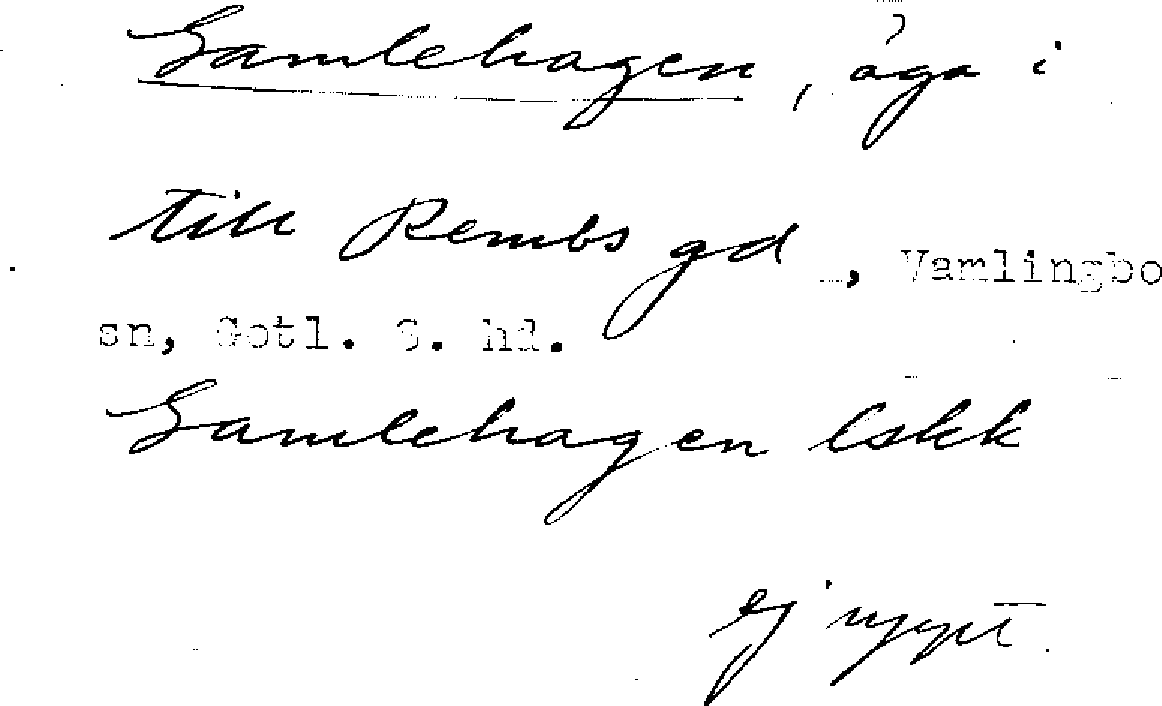 Gamlehagen, äga i
till Rembs gd, Vamlingbo
sn, Gotl. S. hd.
Gamlehagen lskk
ej uppt.